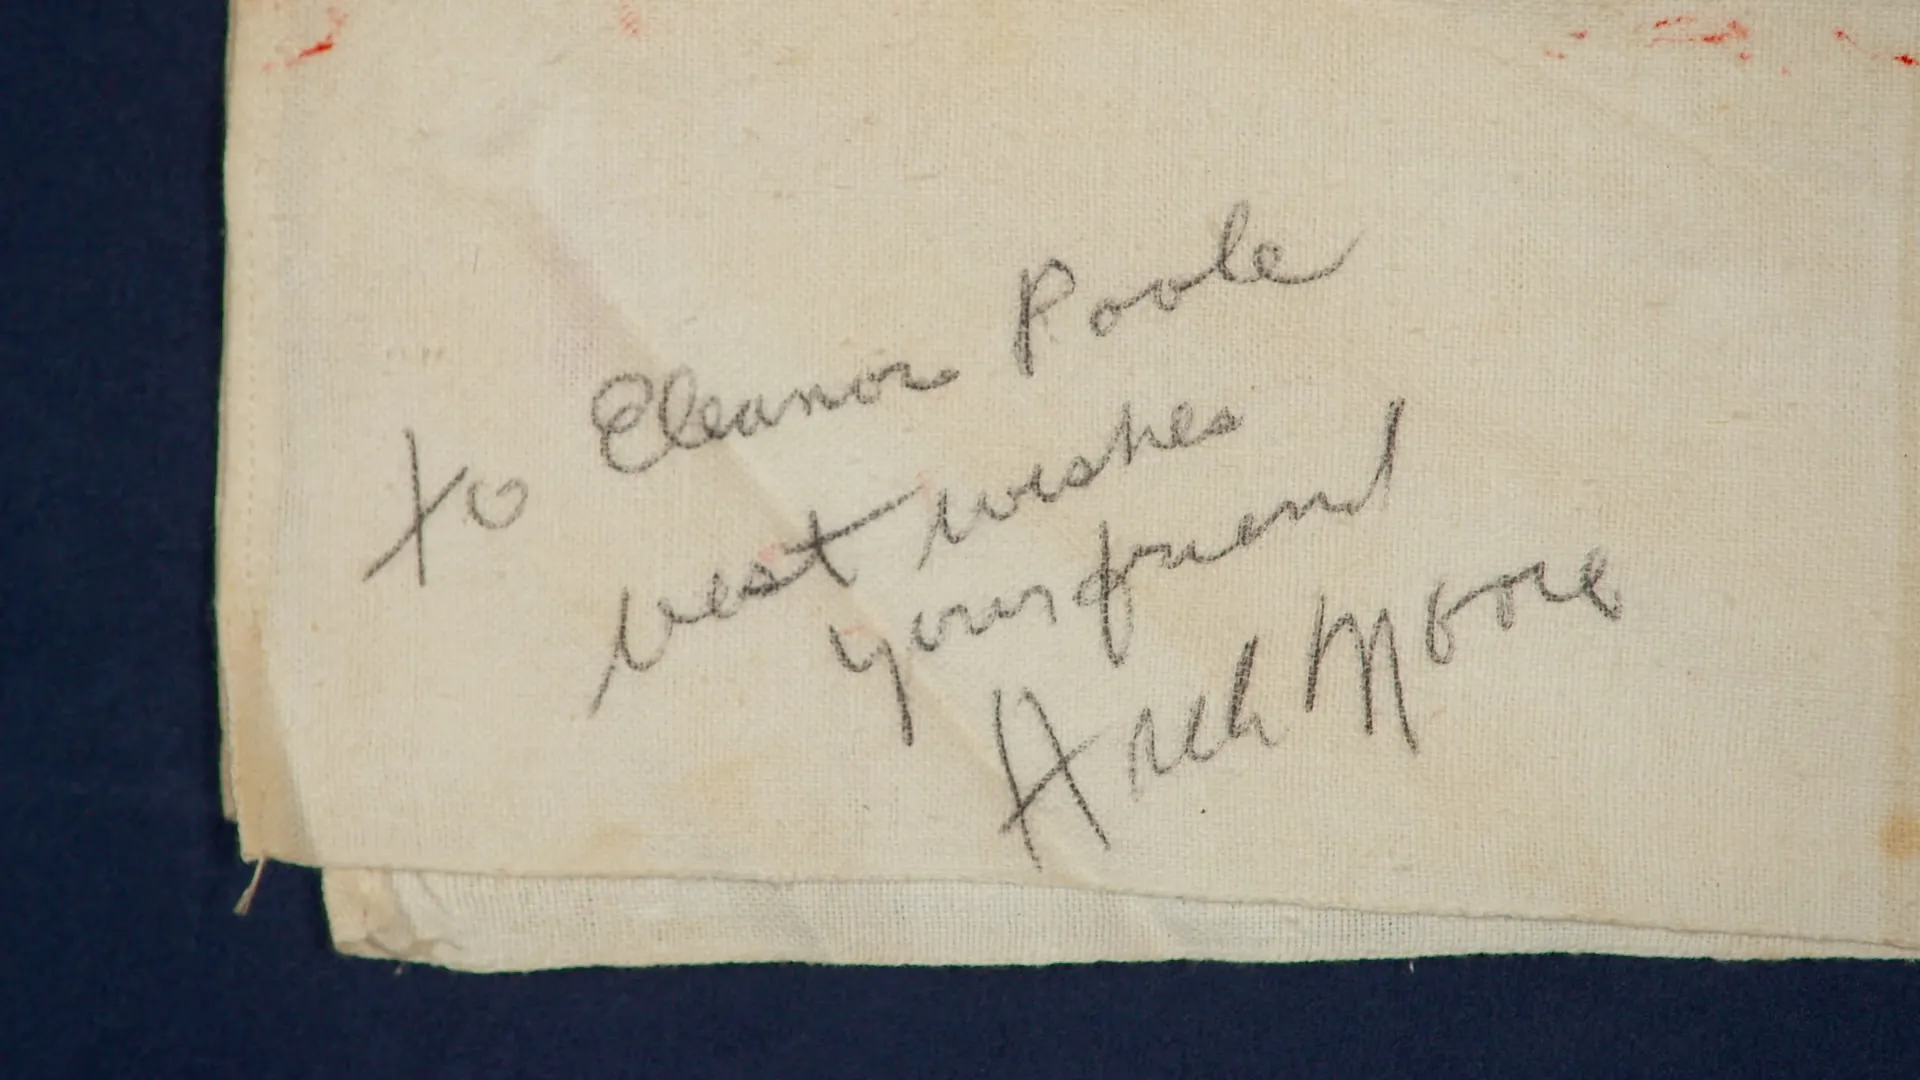 to Eleanor Poole
best wishes
your friend
Arch Moore